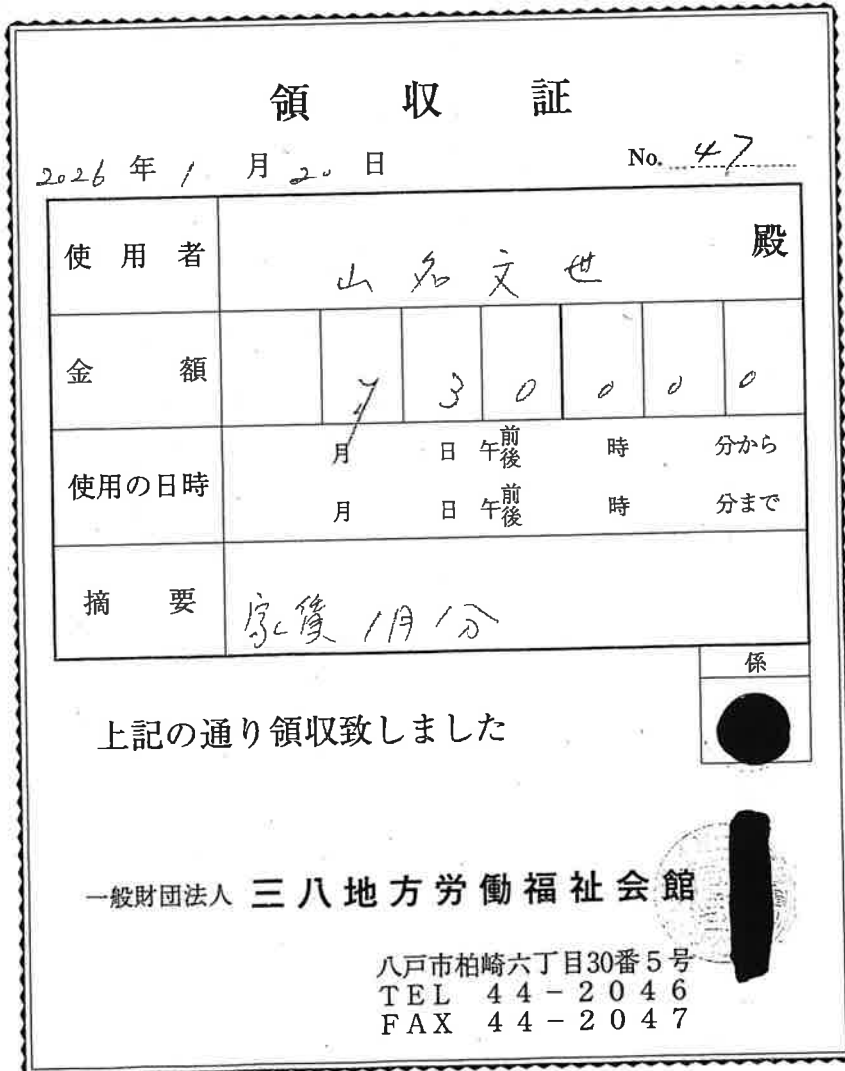 領収証
2026年1月20日 No. 47
使用者 山名文世 殿
金額 ¥30000
使用の日時 月 日 午前後 時 分から
月 日 午前後 時 分まで
摘要 家賃1月分
係
上記の通り領収致しました
一般財団法人 三八地方労働福祉会館
八戸市柏崎六丁目30番5号
TEL 44-2046
FAX 44-2047